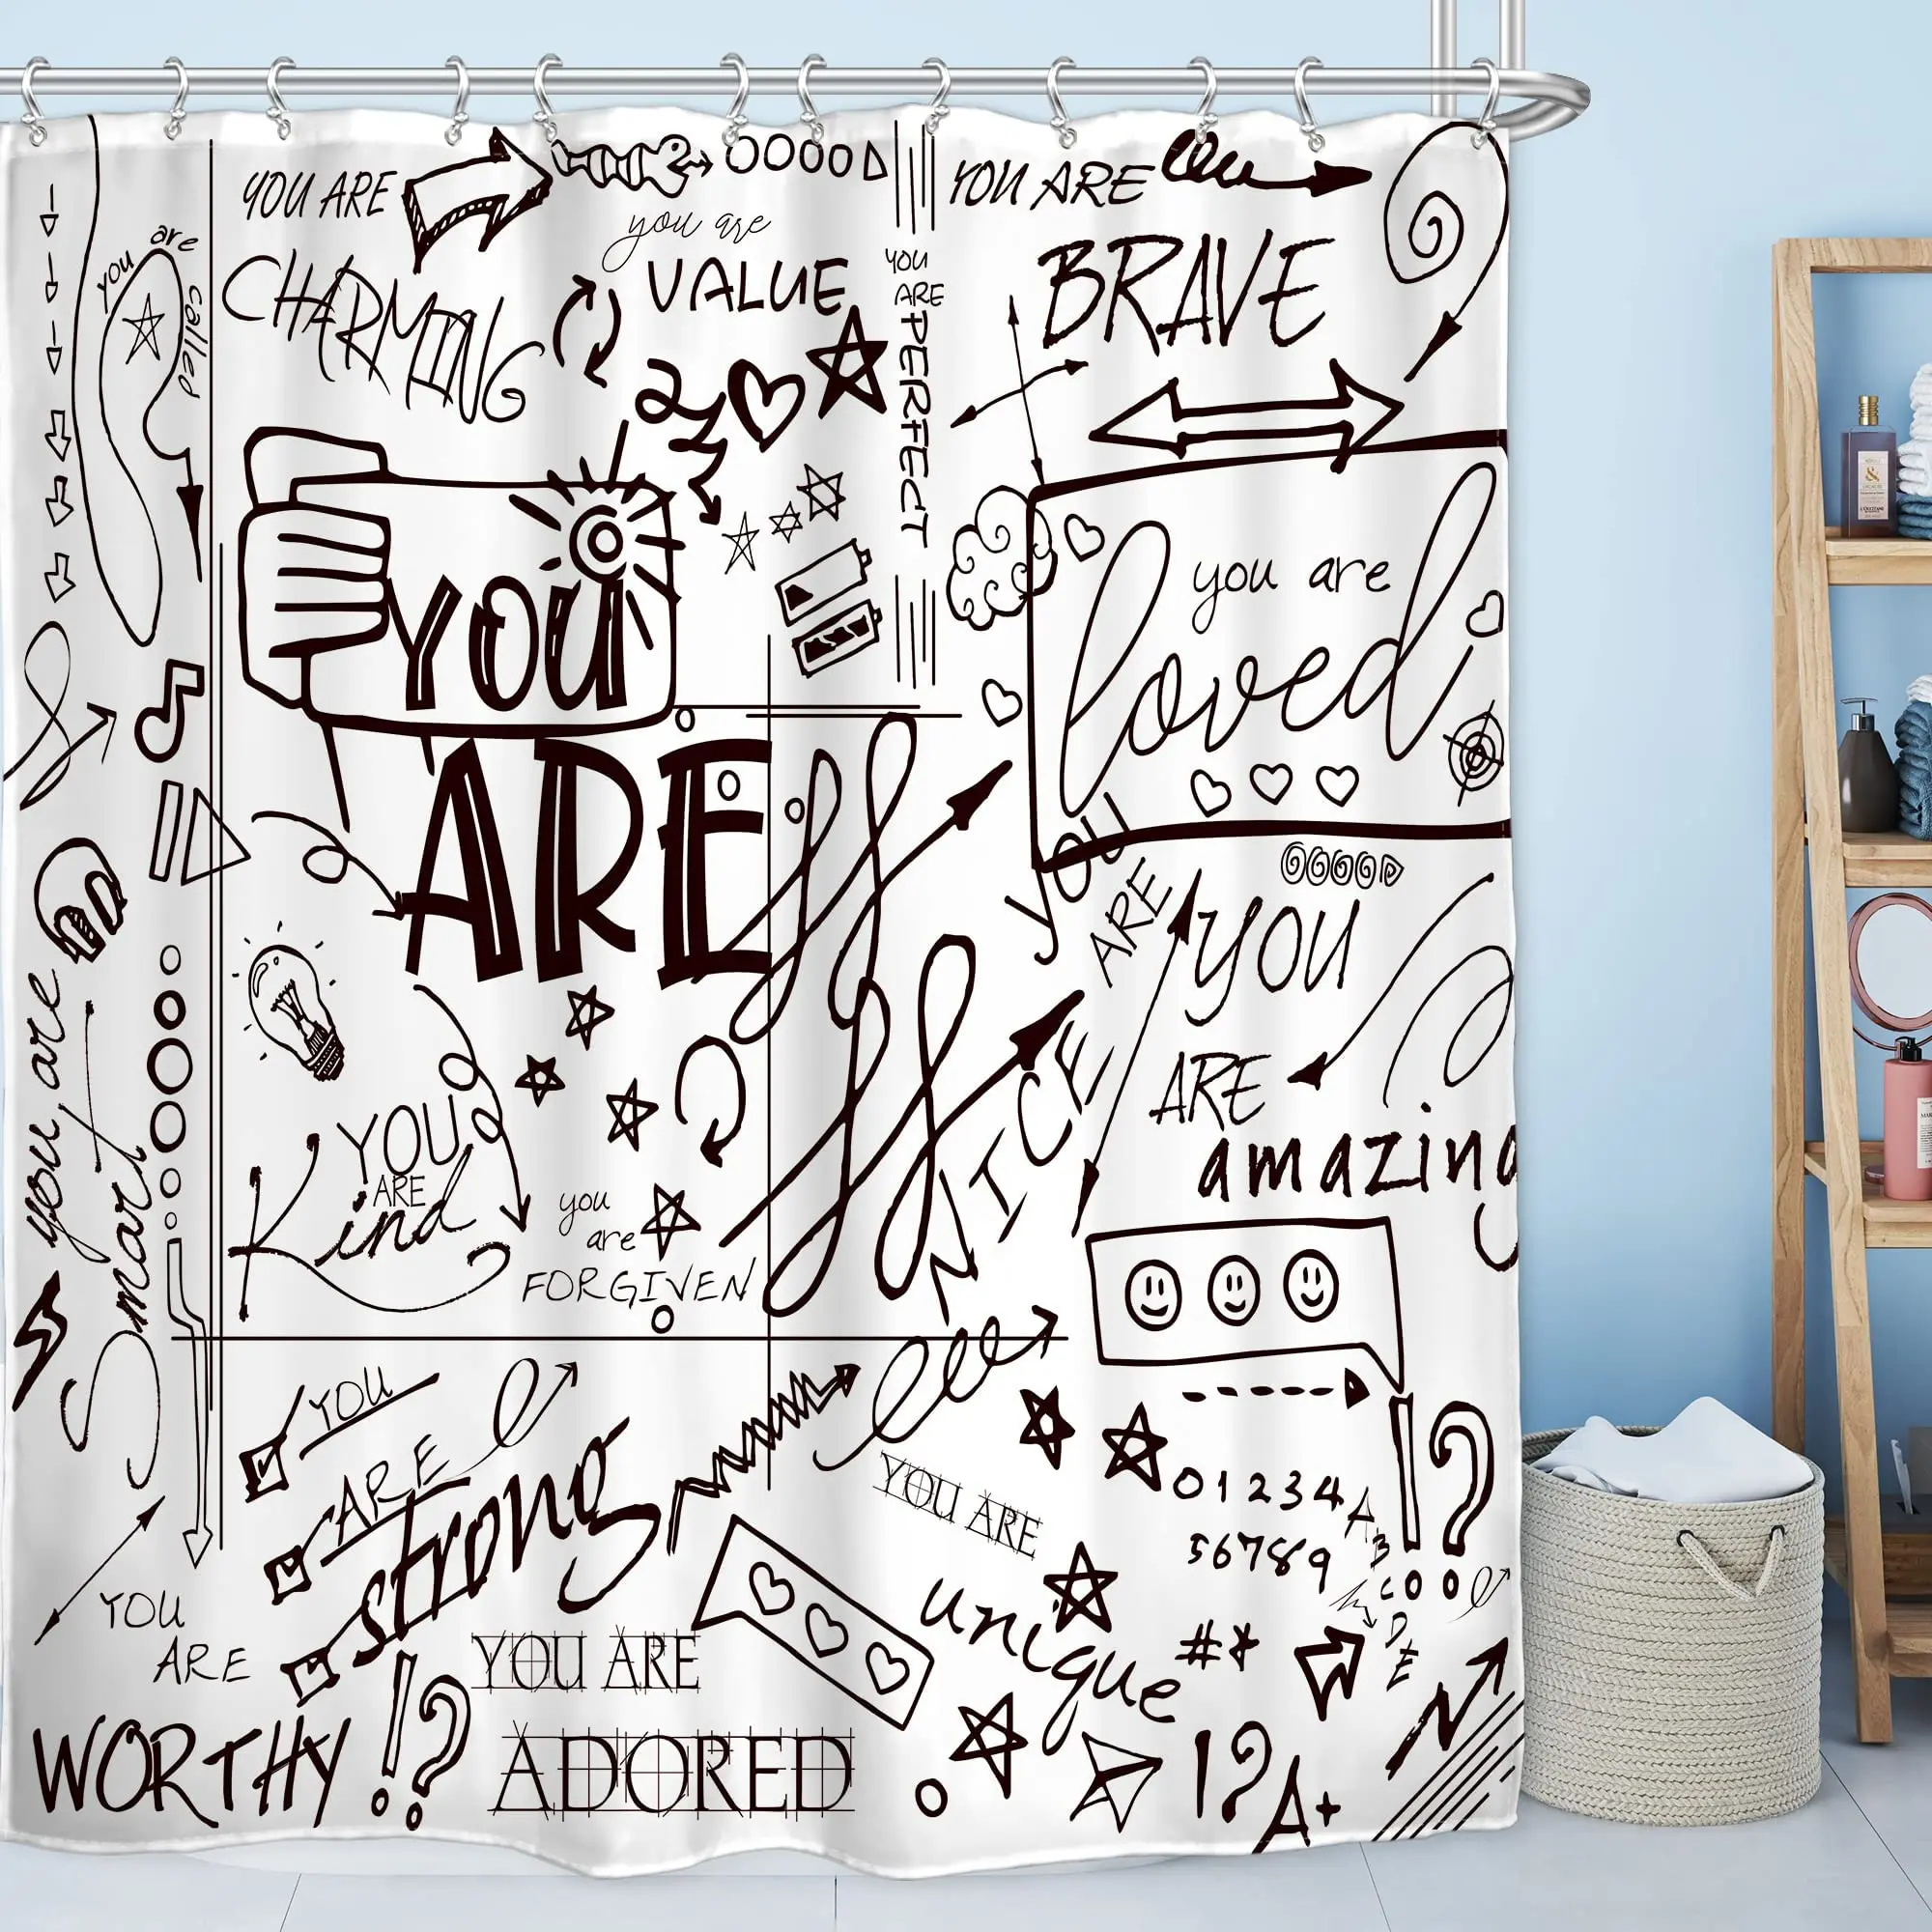 YOU ARE
CHARMING
you are
VALUE
YOU
ARE
PERFECT
YOU ARE
BRAVE
you are
called
YOU
ARE
you are
loved
YOU
ARE
NICE
YOU
ARE
amazing
you are
Smart
YOU
ARE
Kind
you
are
FORGIVEN
YOU
ARE
strong
YOU ARE
unique
0 1 2 3 4
5 6 7 8 9
A
B
C
D
E
!?
#*
YOU
ARE
WORTHY
!?
YOU ARE
ADORED
!?
A+